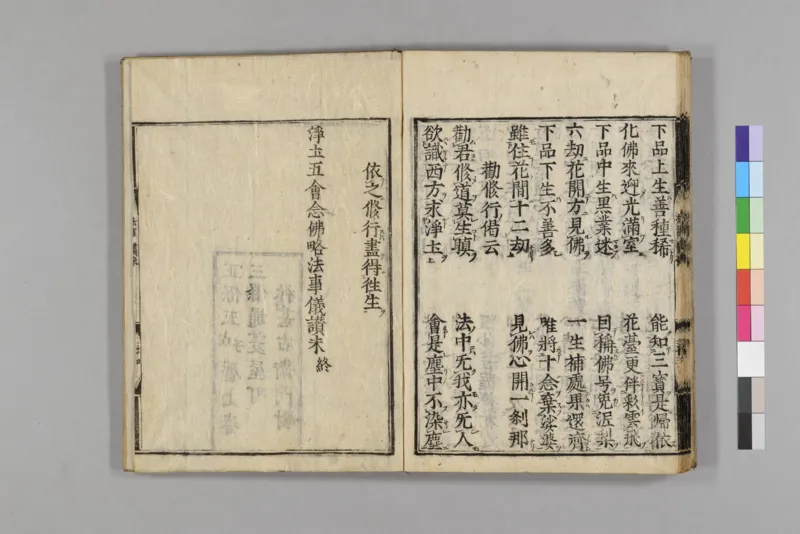 下品上生善種稀　能知三寶是歸依
化佛來迎光滿室　花臺更伴彩雲飛
下品中生黒業迷　曰稱佛号免泥梨
六劫花開方見佛　一生補處果還齊
下品下生不善多　唯將十念棄娑婆
雖住花間十二劫　見佛心開一刹那
勸修行偈云
勸君修道莫生瞋　法中无我亦无人
欲識西方求淨土　會是塵中不染塵
依之修行盡得往生
淨土五會念佛略法事儀讚末 終